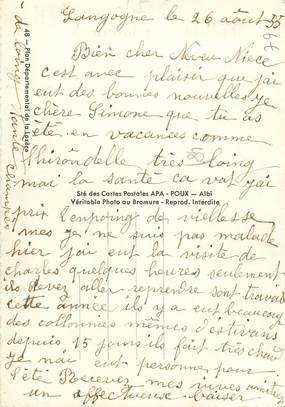 Langogne le 26 août 55
Bien cher Neveu Niece
c'est avec plaisir que j'ai
eut des bonnes nouvelles je
chère Simone que tu as
été en vacances comme
l'hirondelle très loing
mai la santé ca vat j'ai
prix l'enpoing de viellesse
mes je ne suis pas malade
hier j'ai eut la visite de
charles quelques heures seulement
ils devez aller reprendre sont travail
cette année ils y a eut beaucoup
des collonnies mêmes d'estivans
depuis 15 jours ils fait très chaud
je n'ai eut personne pour
l'été Recevez mes vives amitiés
un affectueuse baiser
48 - Plan Départemental de la Lozère
Sté des Cartes Postales APA - POUX - Albi
Véritable Photo au Bromure - Reprod. Interdite